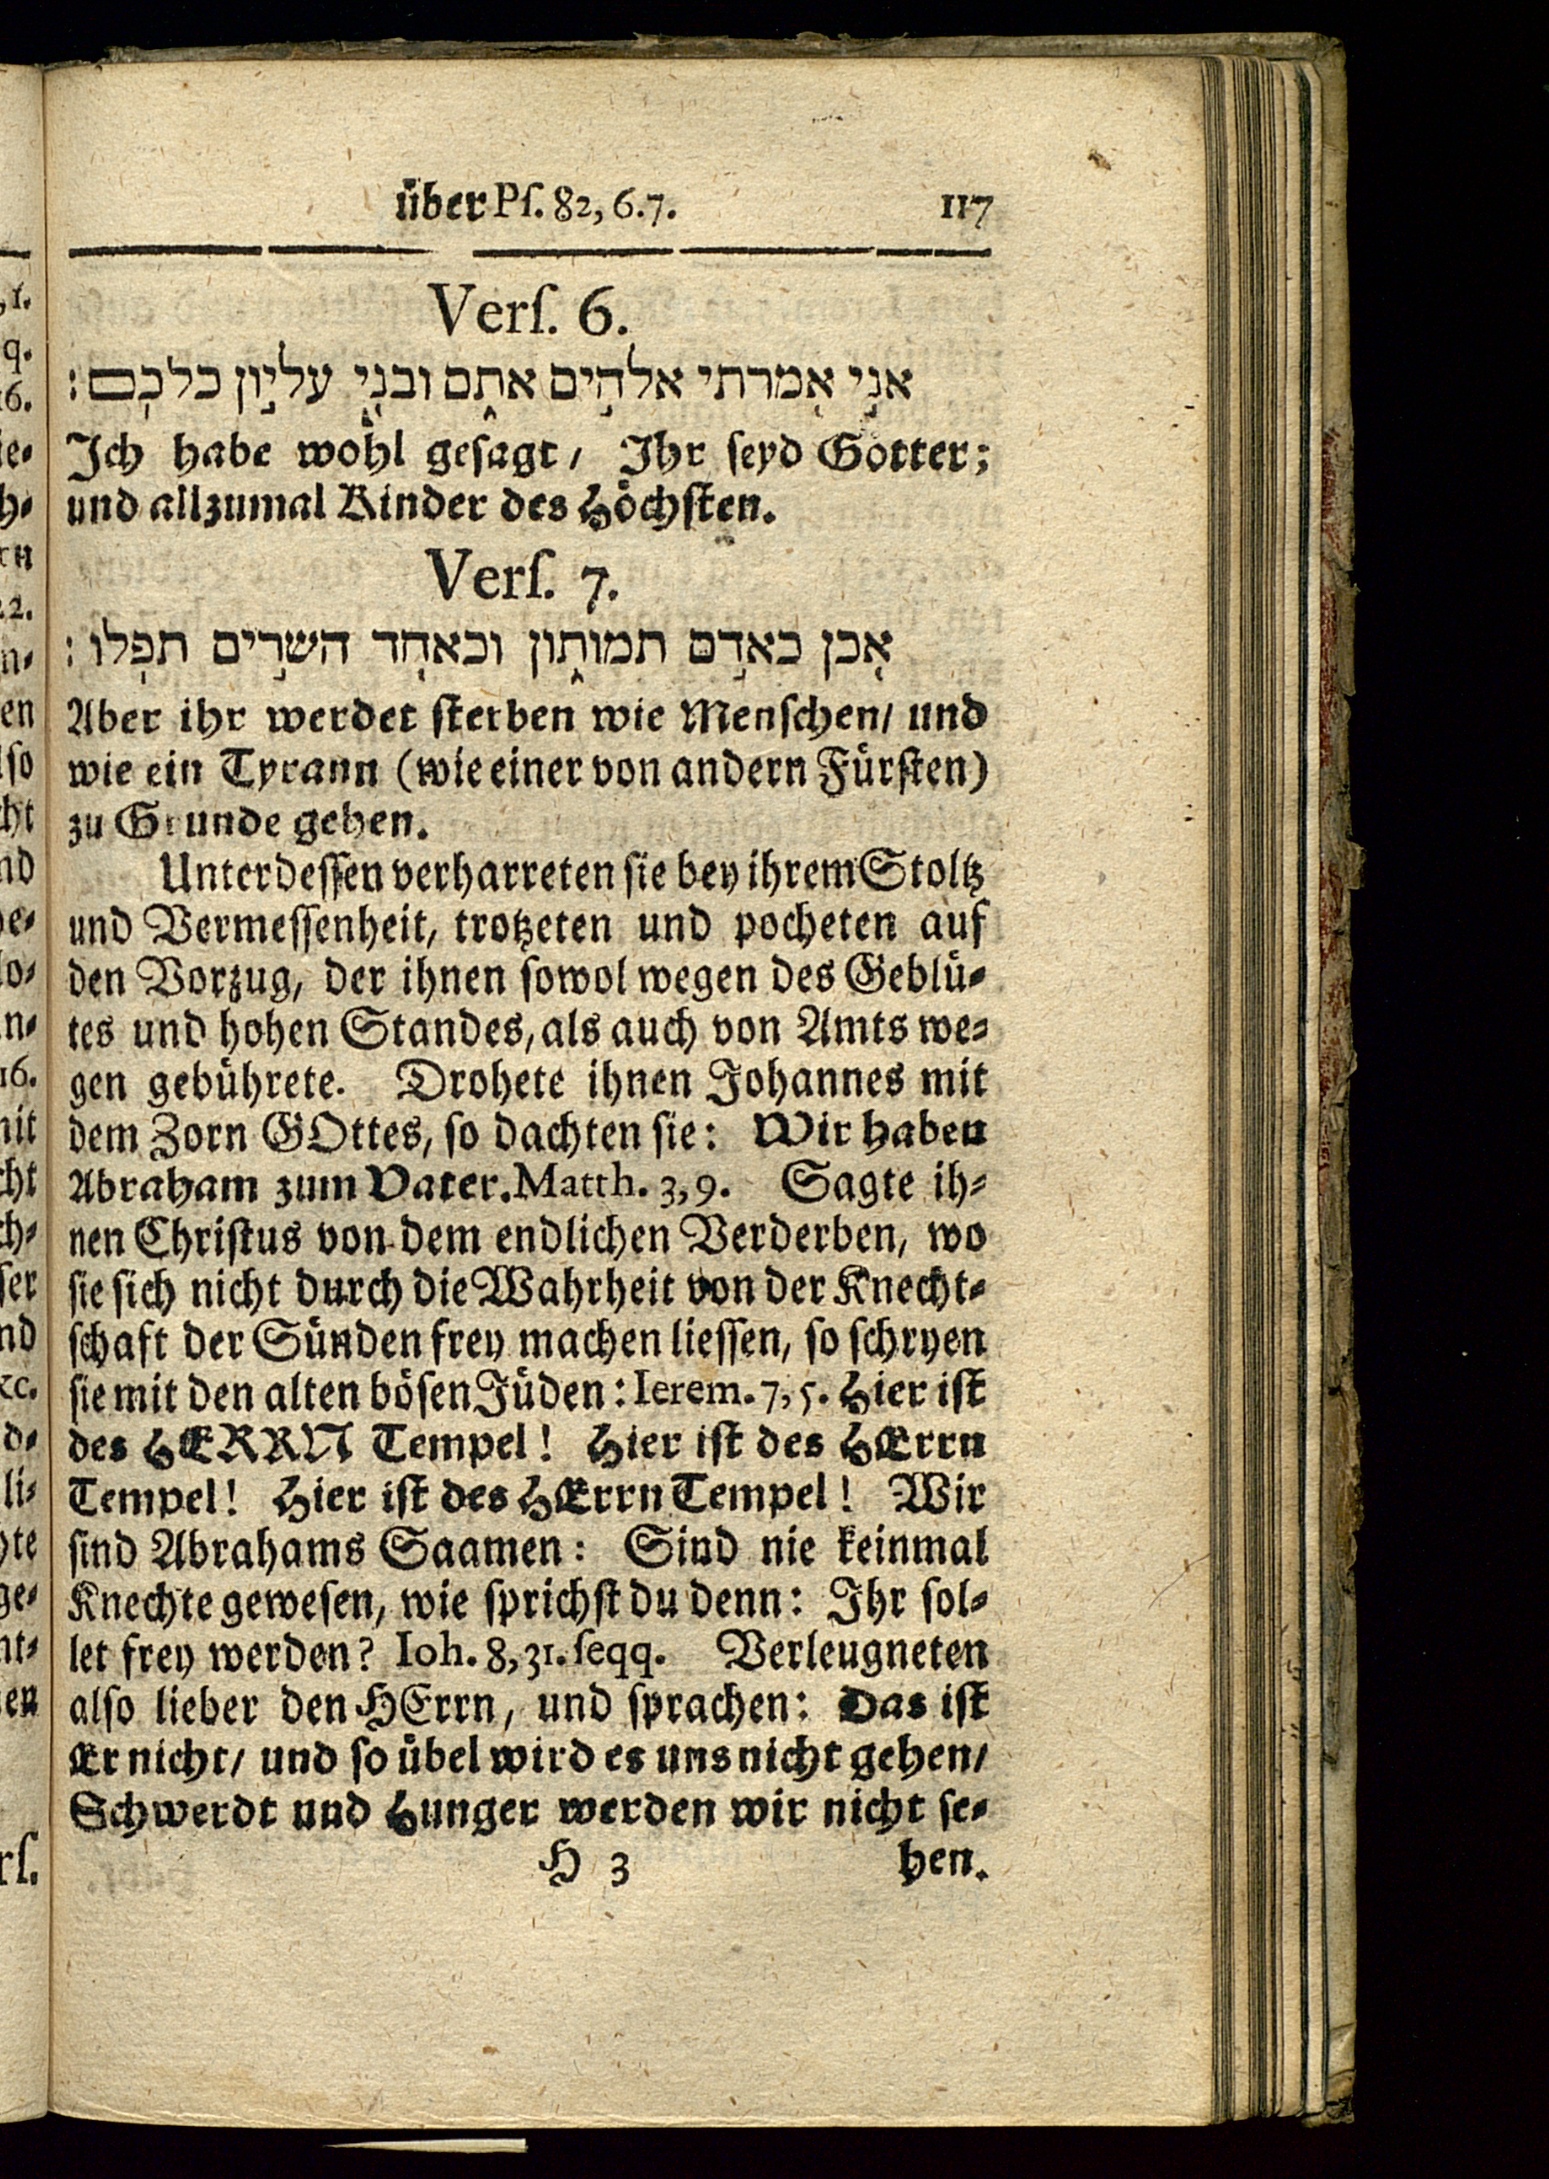 über Pſ. 82, 6. 7. 117
Verſ. 6.
אני אמרתי אלהים אתם ובני עליון כלכם׃
Ich habe wohl geſagt / Ihr ſeyd Götter;
und allzumal Kinder des Höchſten.
Verſ. 7.
אכן כאדם תמותון וכאחד השרים תפלו׃
Aber ihr werdet ſterben wie Menſchen / und
wie ein Tyrann (wie einer von andern Fürſten)
zu Grunde gehen.
Unterdeſſen verharreten ſie bey ihrem Stoltz
und Vermeſſenheit, trotzeten und pocheten auf
den Vorzug, der ihnen ſowol wegen des Geblü-
tes und hohen Standes, als auch von Amts we-
gen gebührete. Drohete ihnen Johannes mit
dem Zorn GOttes, ſo dachten ſie: Wir haben
Abraham zum Vater. Matth. 3, 9. Sagte ih-
nen Chriſtus von dem endlichen Verderben, wo
ſie ſich nicht durch die Wahrheit von der Knecht-
ſchaft der Sünden frey machen lieſſen, ſo ſchryen
ſie mit den alten böſen Jüden: Ierem. 7, 5. Hier iſt
des HERRN Tempel! Hier iſt des HErrn
Tempel! Hier iſt des HErrn Tempel! Wir
ſind Abrahams Saamen: Sind nie keinmal
Knechte geweſen, wie ſprichſt du denn: Ihr ſol-
let frey werden? Ioh. 8, 31. ſeqq. Verleugneten
alſo lieber den HErrn, und ſprachen: Das iſt
Er nicht / und ſo übel wird es uns nicht gehen /
Schwerdt und Hunger werden wir nicht ſe-
H 3 hen.